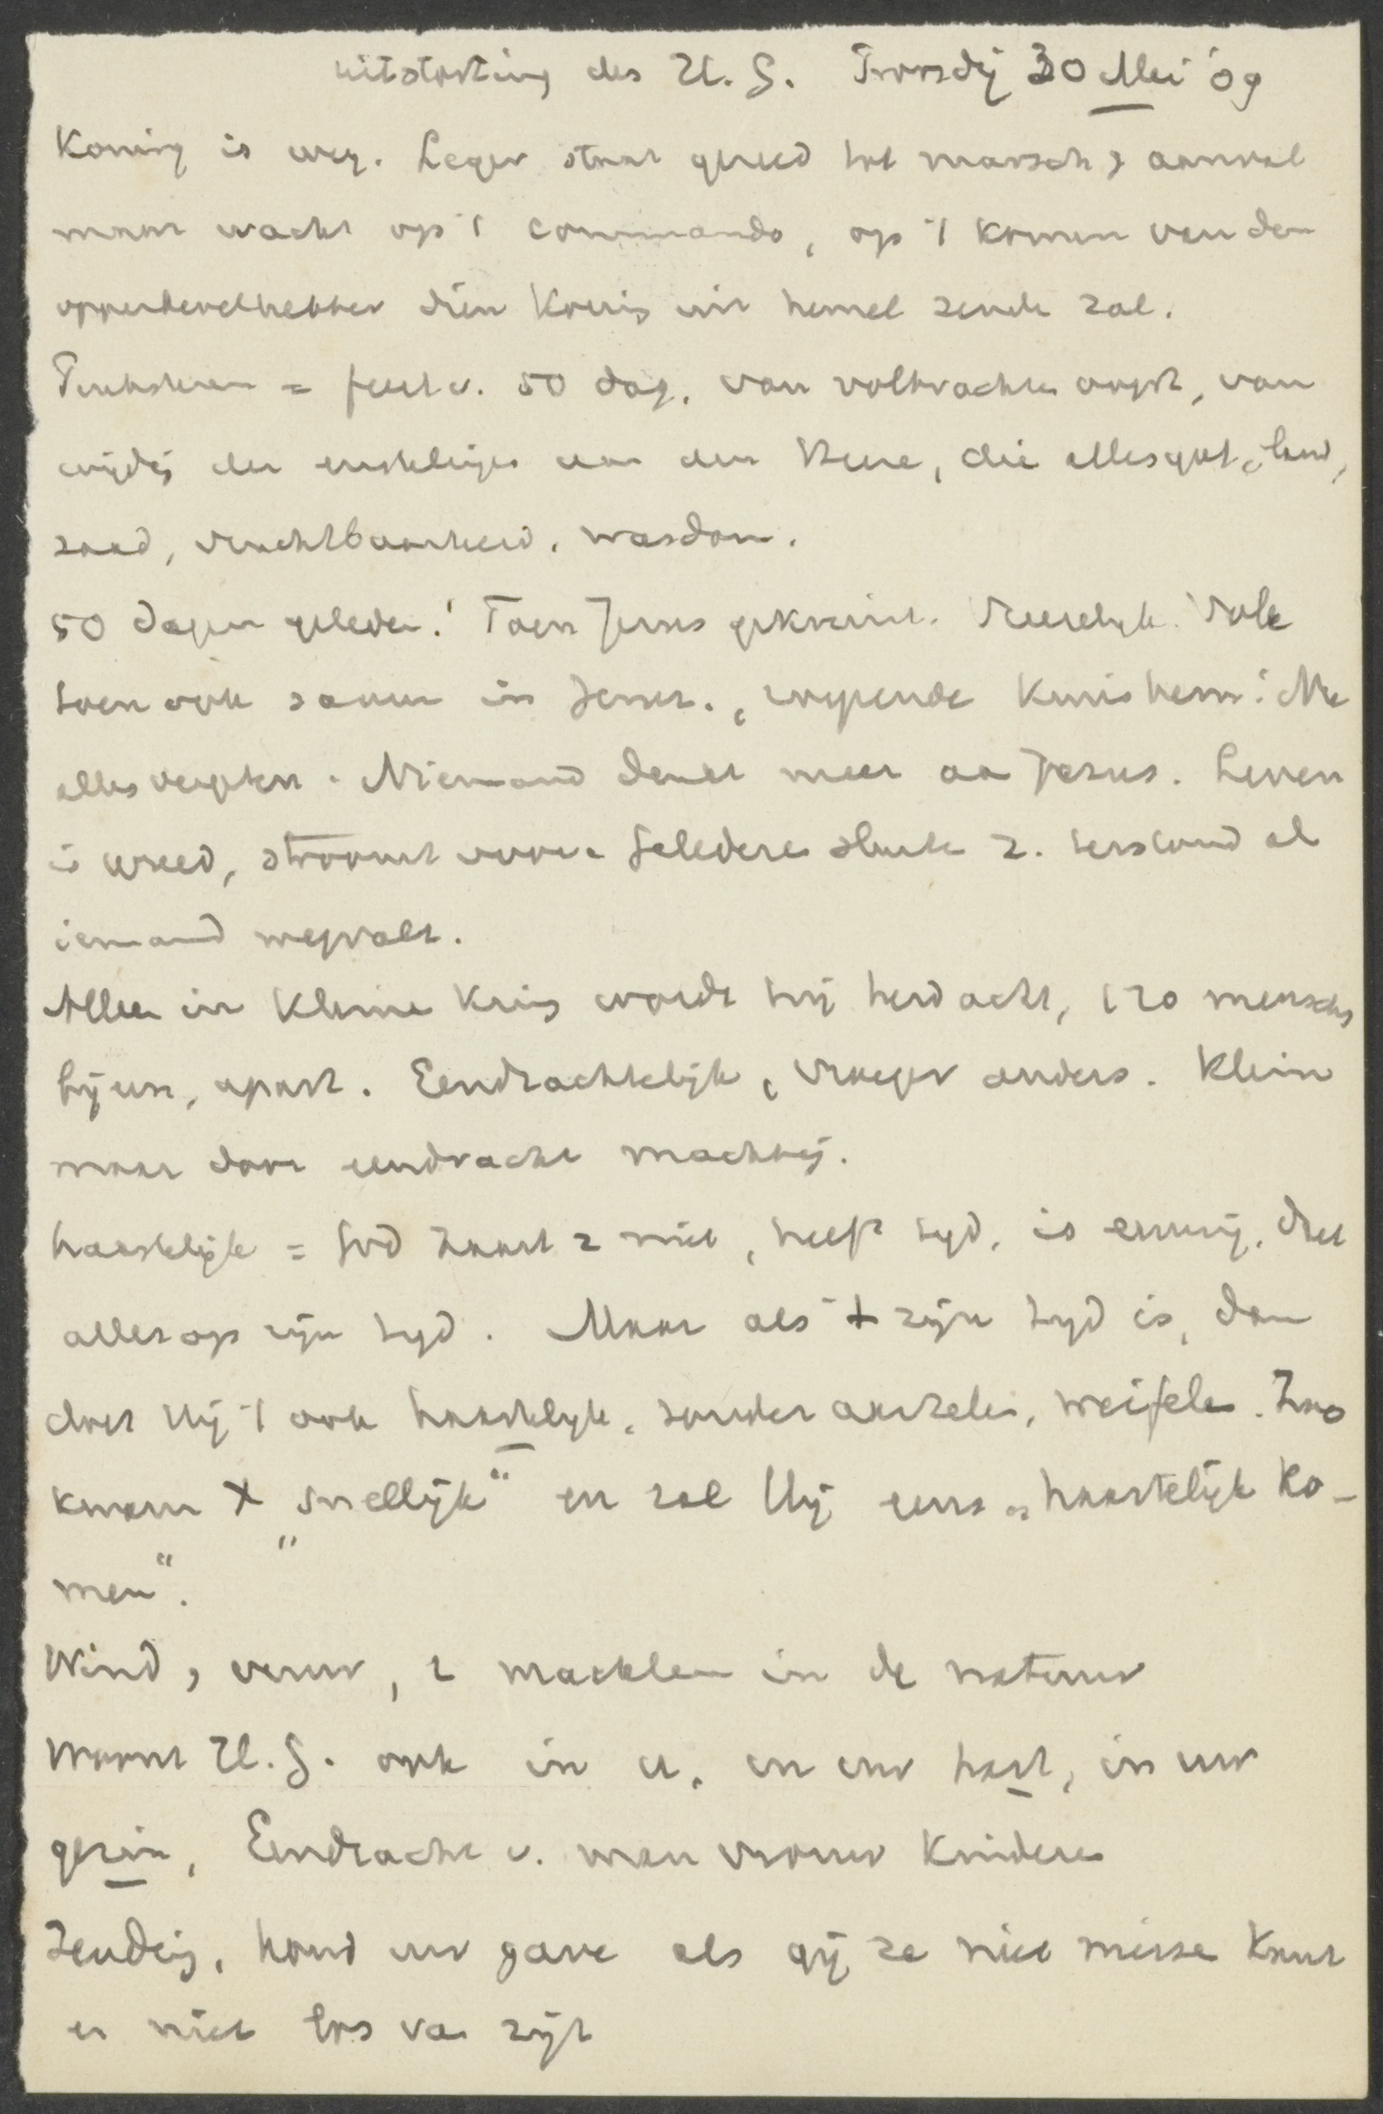 uitstorting des H. G. 30 Mei '09
Koning is weg. Leger staat gereed tot marsch & aanval
maar wacht op 't commando, op 't komen van den
opperbevelhebber dien Koning uit hemel zende zal.
Pinksteren = feest v. 50 dag, van volbrachte oogst, van
wijdg der eerstelinge aan den Heere, die alles gaf, land,
zaad, vruchtbaarheid, wasdom.
50 dagen geleden! Toen Jezus gekruist. Vreeselijk. Volk
toen ook samen in Jeruz., roepende Kruis hem! Nu
alles vergeten. Niemand denkt meer aa Jezus. Leven
is wreed, stroomt voort. Gelederen sluiten z. terstond al
iemand wegvalt.
Alleen in kleine kring wordt hij herdacht, 120 menschen
bijeen, apart. Eendrachtelijk, vroeger anders. Klein
maar door eendracht machtig.
haastelijk = God haast z niet, heeft tijd, is eeuwig, doet
alles op zijn tijd. Maar als 't zijn tijd is, dan
doet Hij 't ook haastelijk, zonder aarzelen, weifelen. Zoo
kwam X "snellijk" en zal Hij eens "haastelijk ko-
men".
Wind, & vuur, 2 machten in de natuur
Woont H. G. ook in u, in uw hart, in uw
gezin, Eendracht v. man vrouw kinderen
Zendeig, houd uw gave als gij ze niet misse kunt
er niet los va zijt